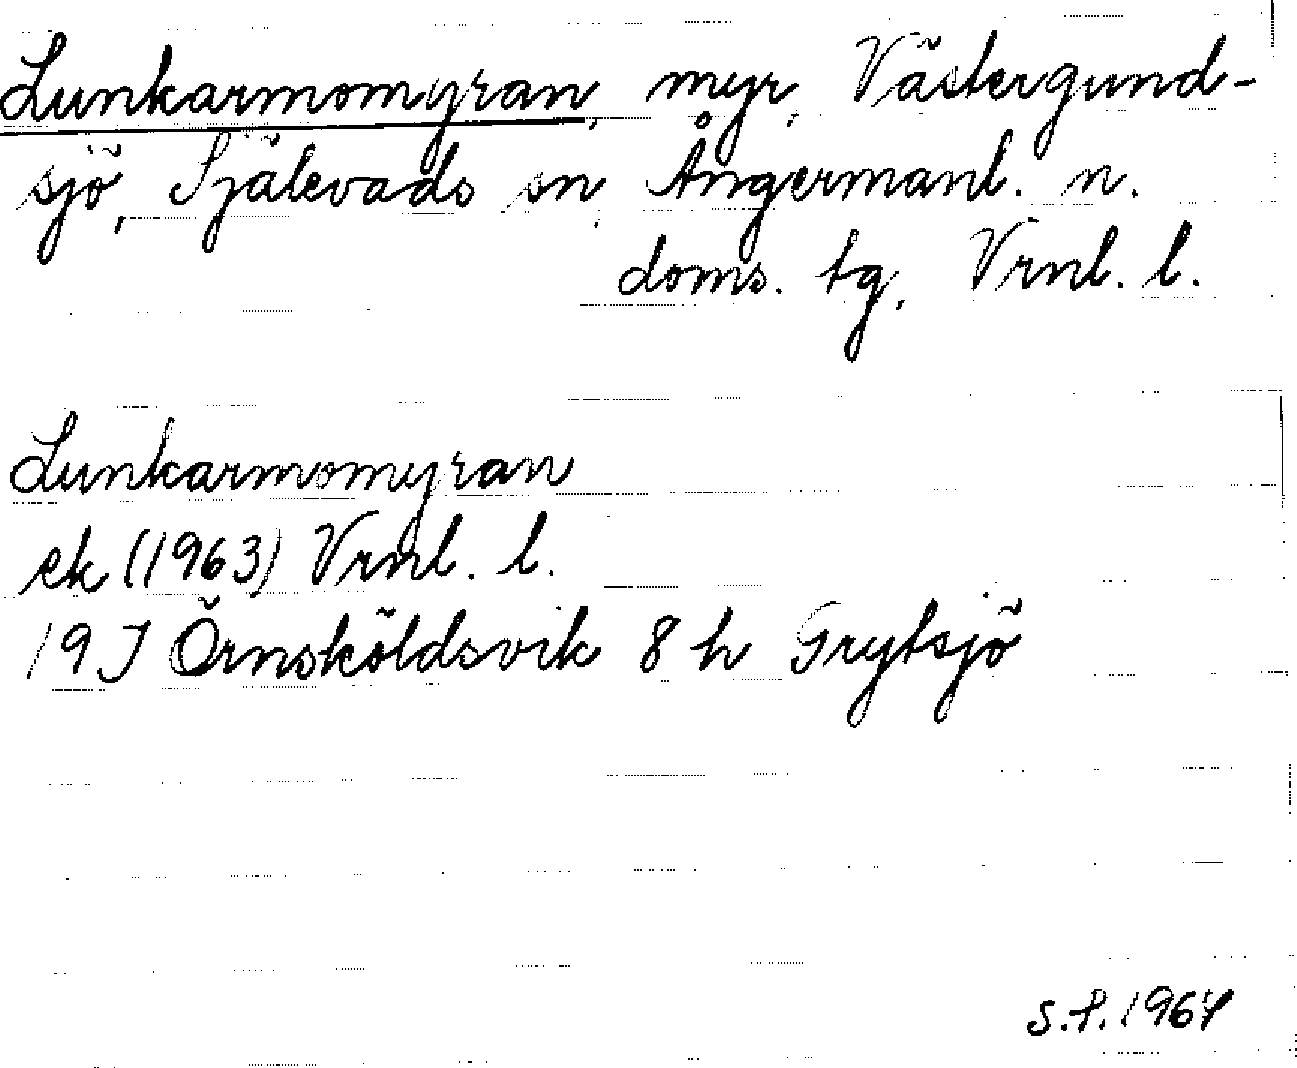 Lunkarmomyran, myr, Västergund-
sjö, Själevads sn, Ångermanl. n.
doms. tg, Vrnl. l.
Lunkarmomyran
ek (1963) Vrnl. l.
19J Örnsköldsvik 8 h Grytsjö
S.P. 1964